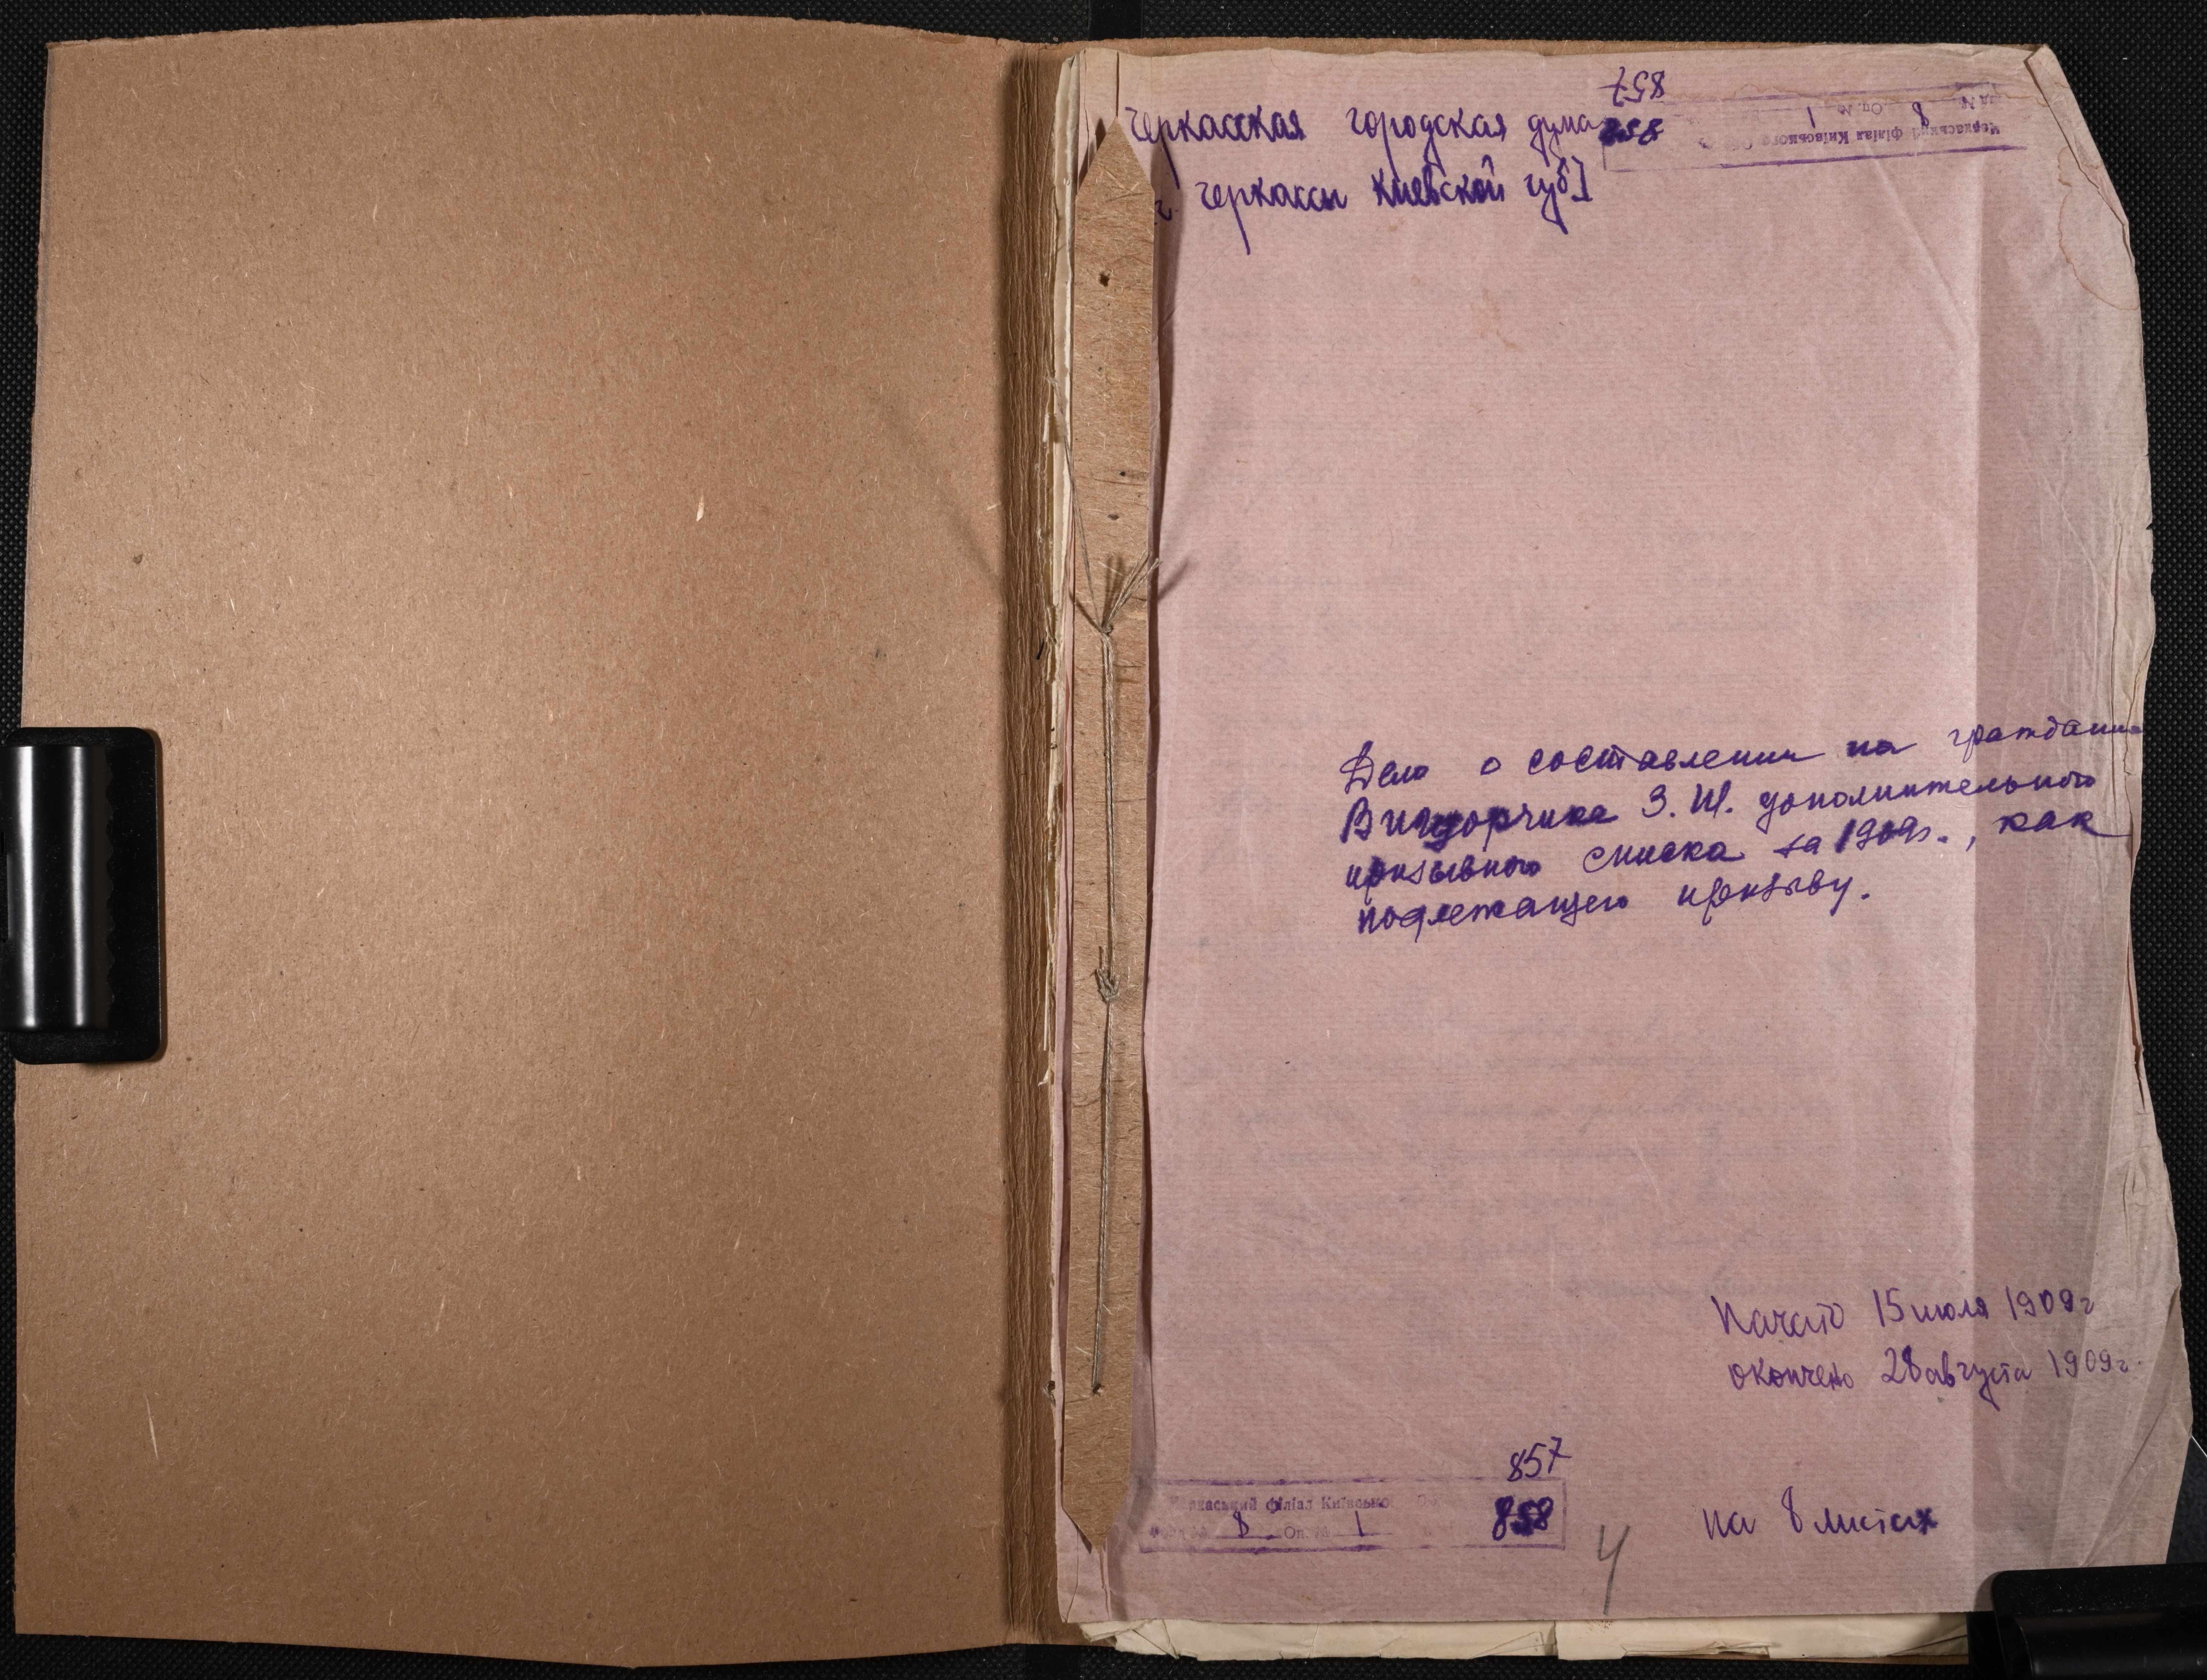 857
Черкасская городская дума 858
г. Черкассы Киевской губ]
Черкаський філіал Київського
Оп. № 1
8
Дело о составлении на гражданина
З. Ш. дополнительного
призывного списка за 1909г., как
подлежащего призыву.
Начато 15 июля 1909г
окончено 28 августа 1909г.
857
Черкаський філіал Київсько
8 Оп. № 1 858
на 8 листах
4